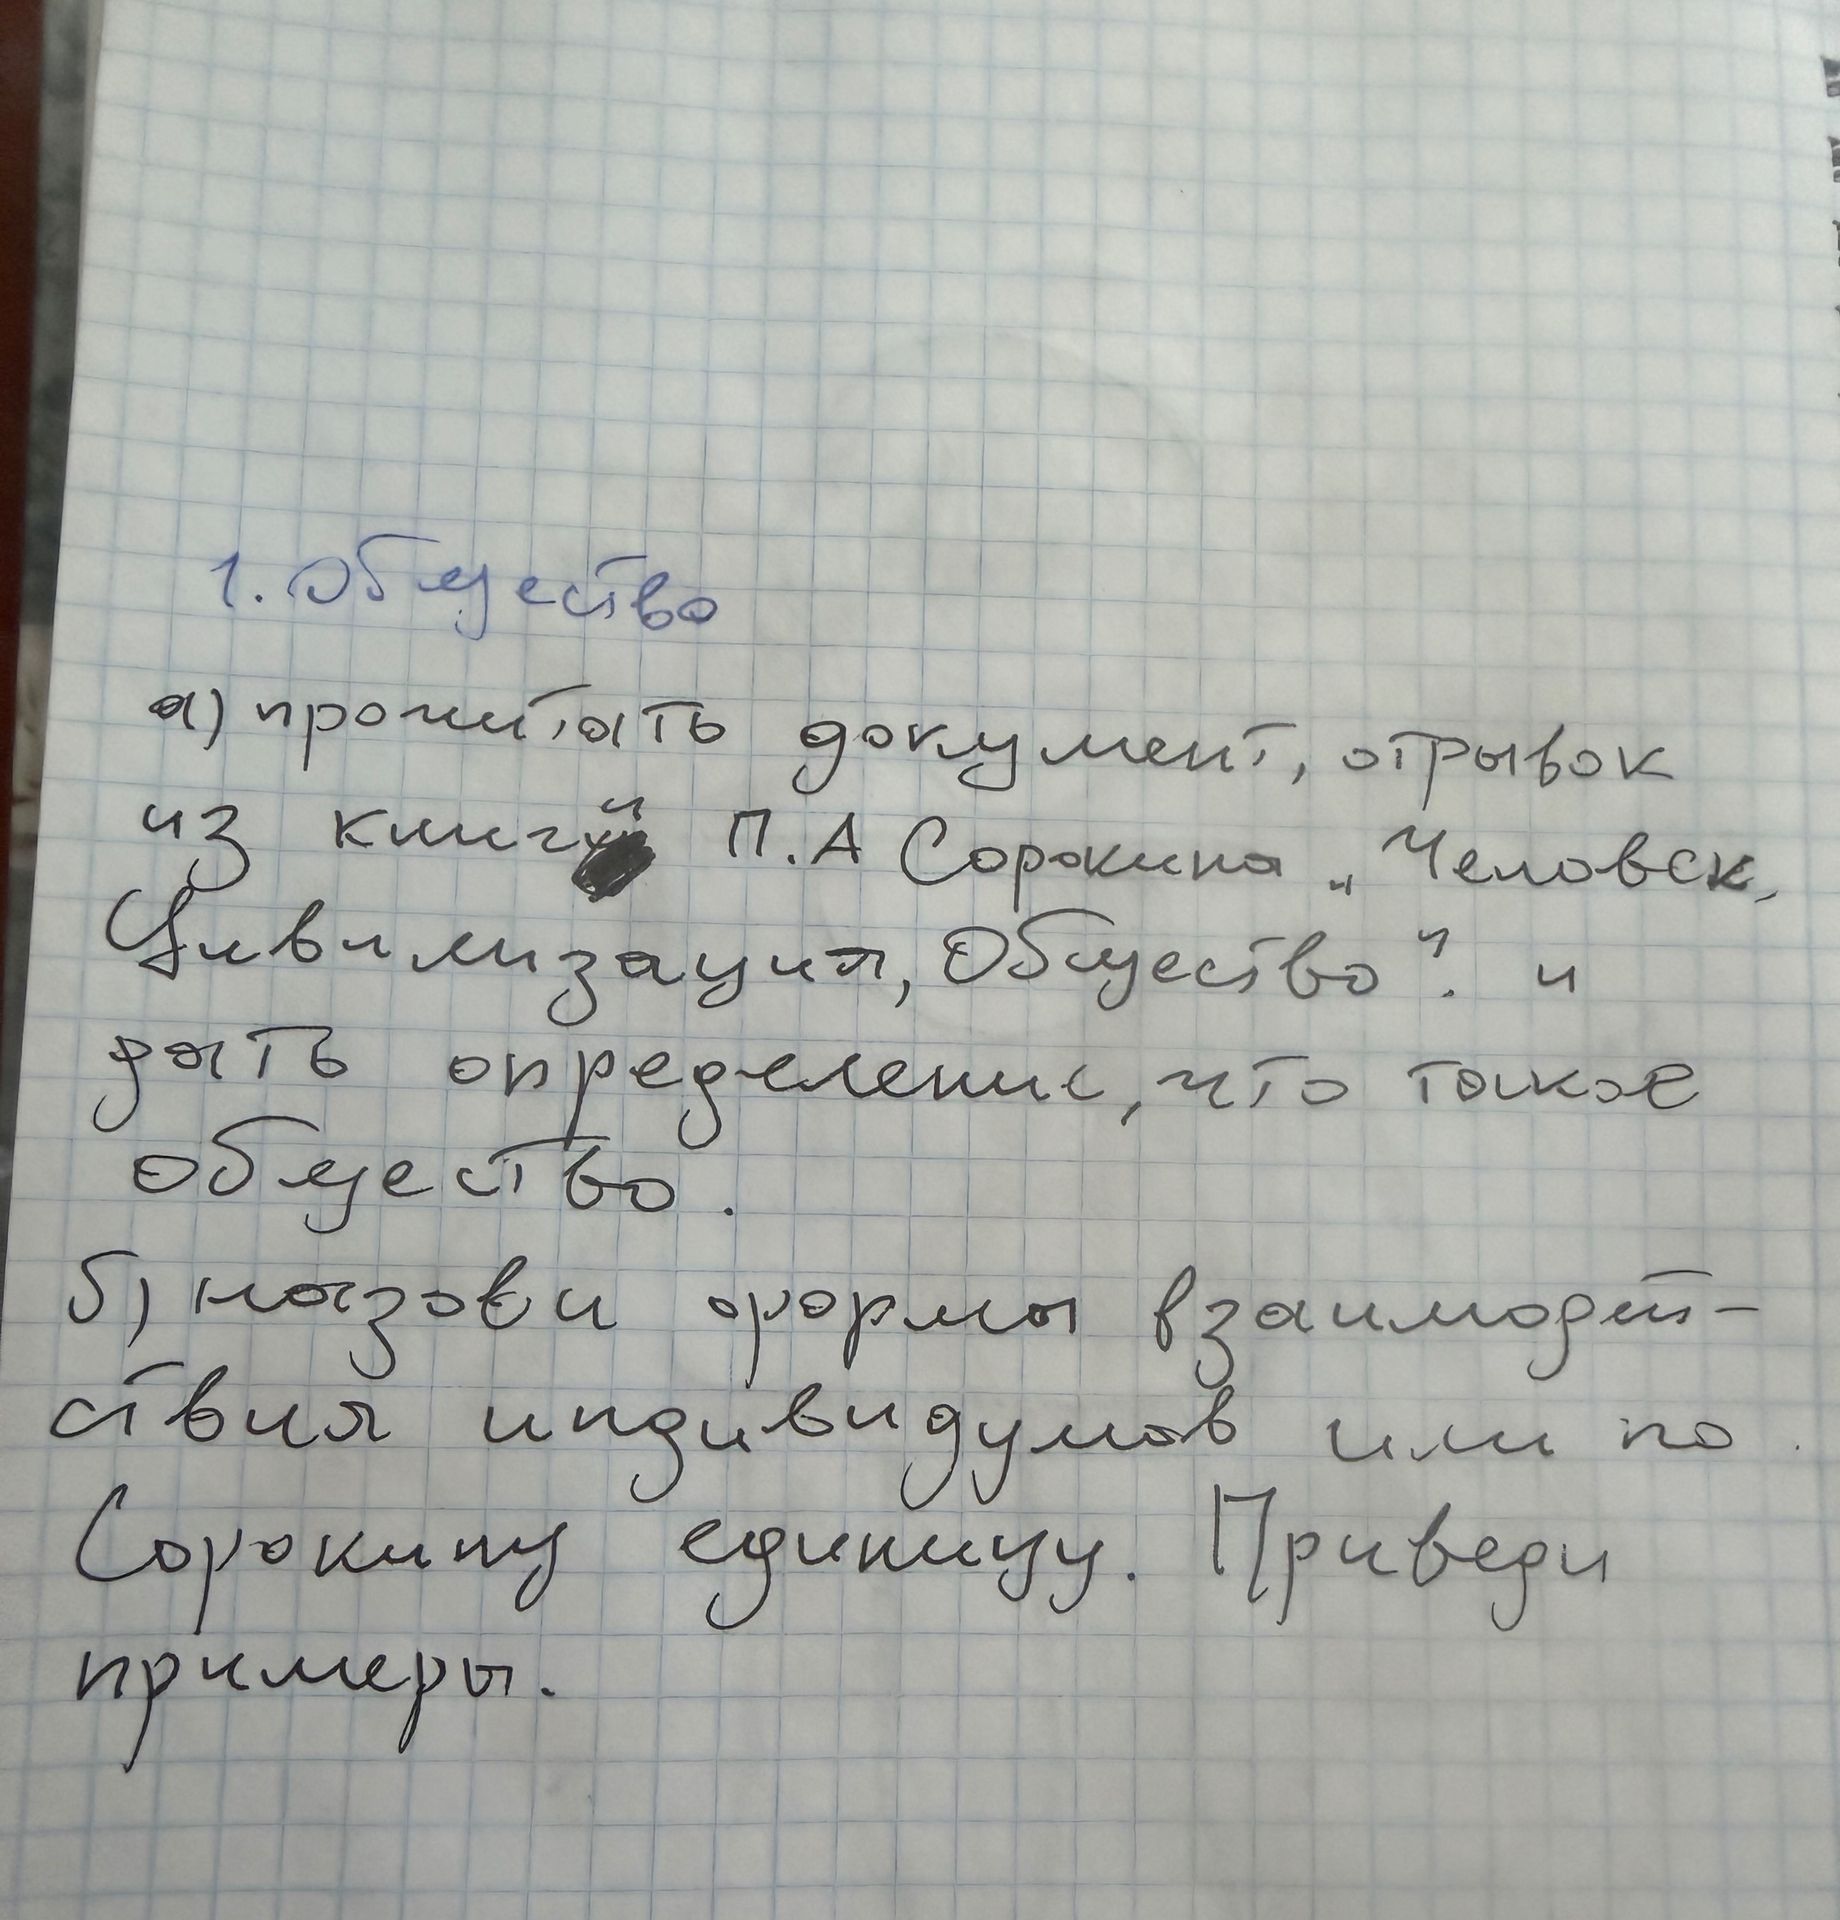 1. Общество
а) прочитать документ, отрывок
из книги П.А Сорокина „Человек,
Цивилизация, Общество". и
дать определение, что такое
общество.
б) назови формы взаимодей-
ствия индивидумов или по
Сорокину единицу. Приведи
примеры.